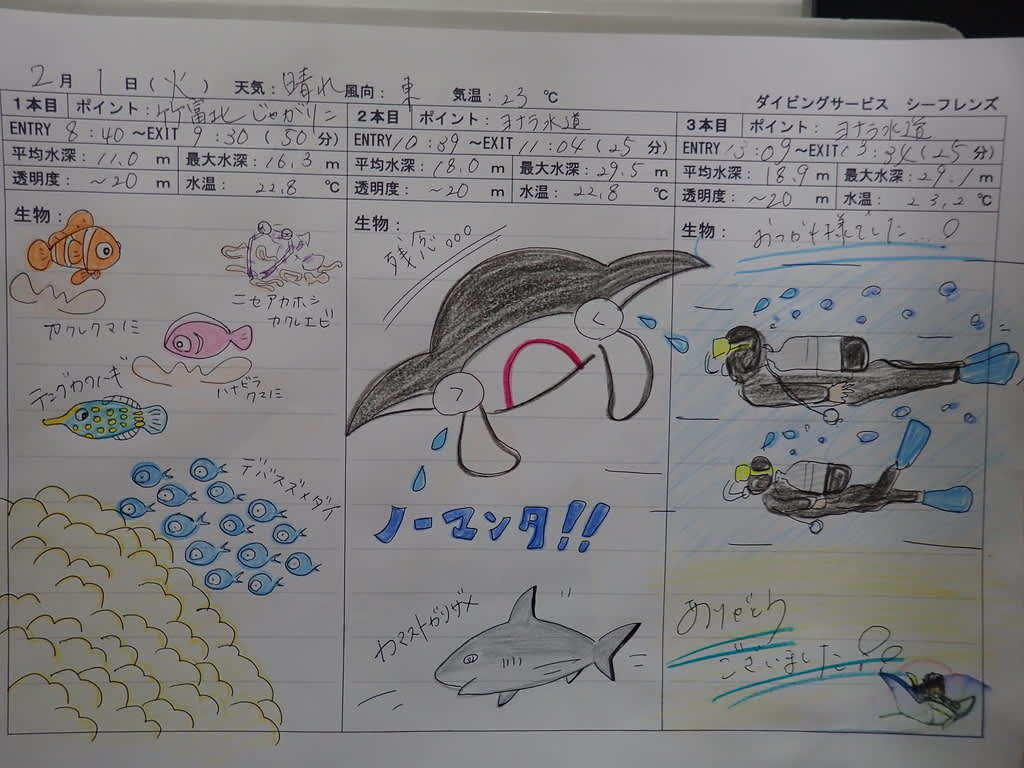 2月 1日(火) 天気:晴れ 風向:東 気温:23℃
ダイビングサービス シーフレンズ
1本目 ポイント:竹富北じゃがりこ
ENTRY 8:40~EXIT 9:30(50分)
平均水深:11.0 m 最大水深:16.3 m
透明度:~20 m 水温:22.8 ℃
生物:
カクレクマノミ
ニセアカホシ
カクレエビ
ハナビラ
クマノミ
テングカワハギ
デバスズメダイ
2本目 ポイント:ヨナラ水道
ENTRY 10:39~EXIT 11:04(25分)
平均水深:18.0 m 最大水深:29.5 m
透明度:~20 m 水温:22.8 ℃
生物:
残念。。。
ノーマンタ!!
カマストガリザメ
3本目 ポイント:ヨナラ水道
ENTRY 13:09~EXIT 13:34(25分)
平均水深:18.9 m 最大水深:29.1 m
透明度:~20 m 水温:23.2 ℃
生物:
おつかれ様でした...。
ありがとう
ございました